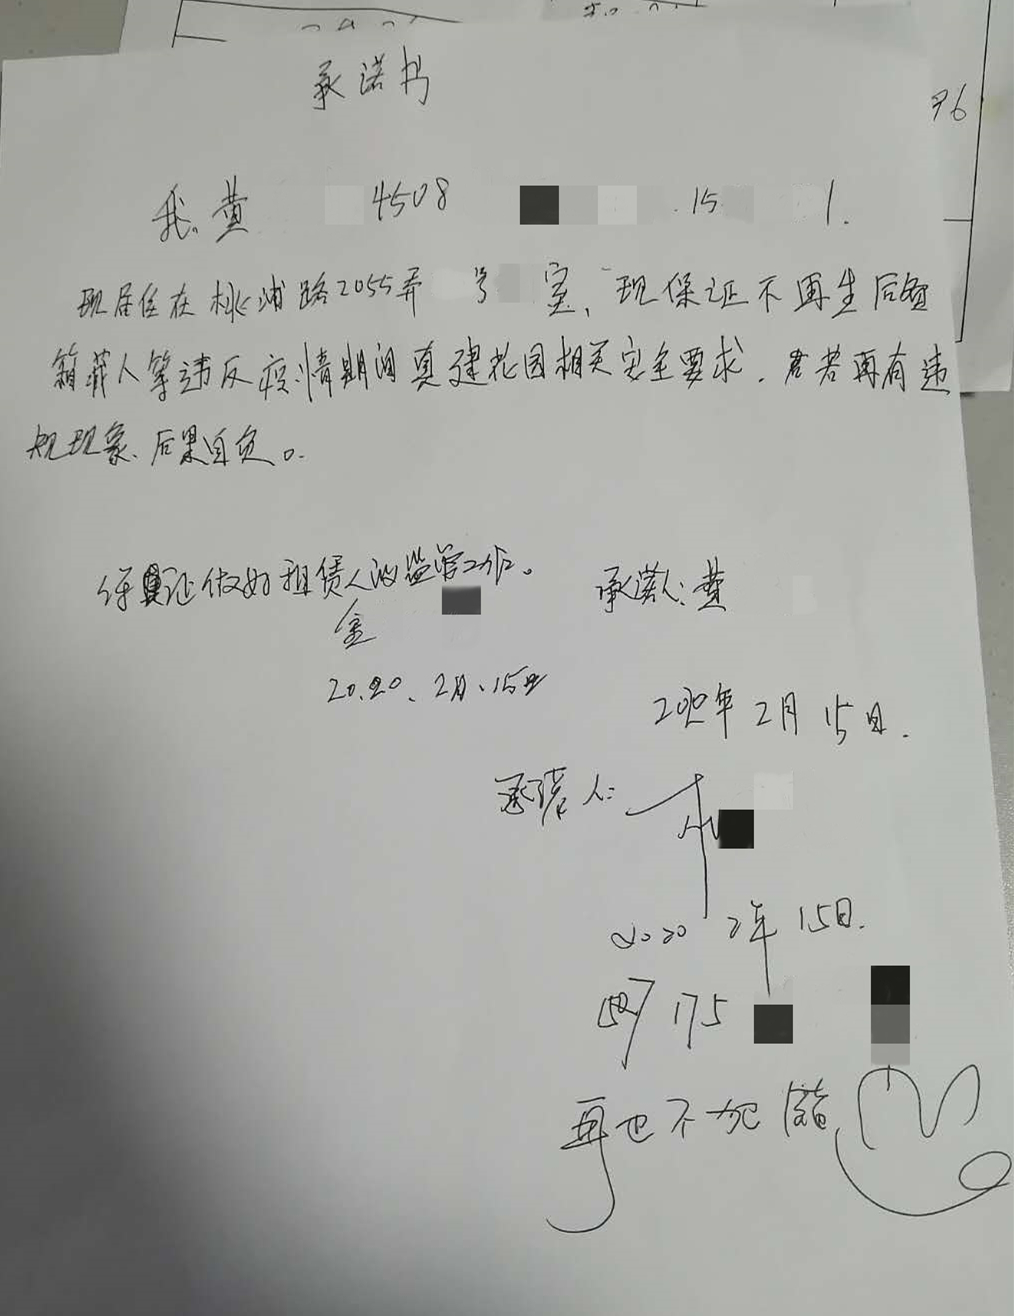 96
承诺书
我、黄 4508 15 1.
现居住在桃浦路2055弄 号 室,现保证不再生后备
箱藏人等违反疫情期间真建花园相关安全要求.若若再有违
规现象、后果自负。
保证做好租赁人的监管工作。
承诺人:黄
金
20.20、2月、15日
2020年2月15日.
承诺人:
2020 2年 15日.
175
再也不犯